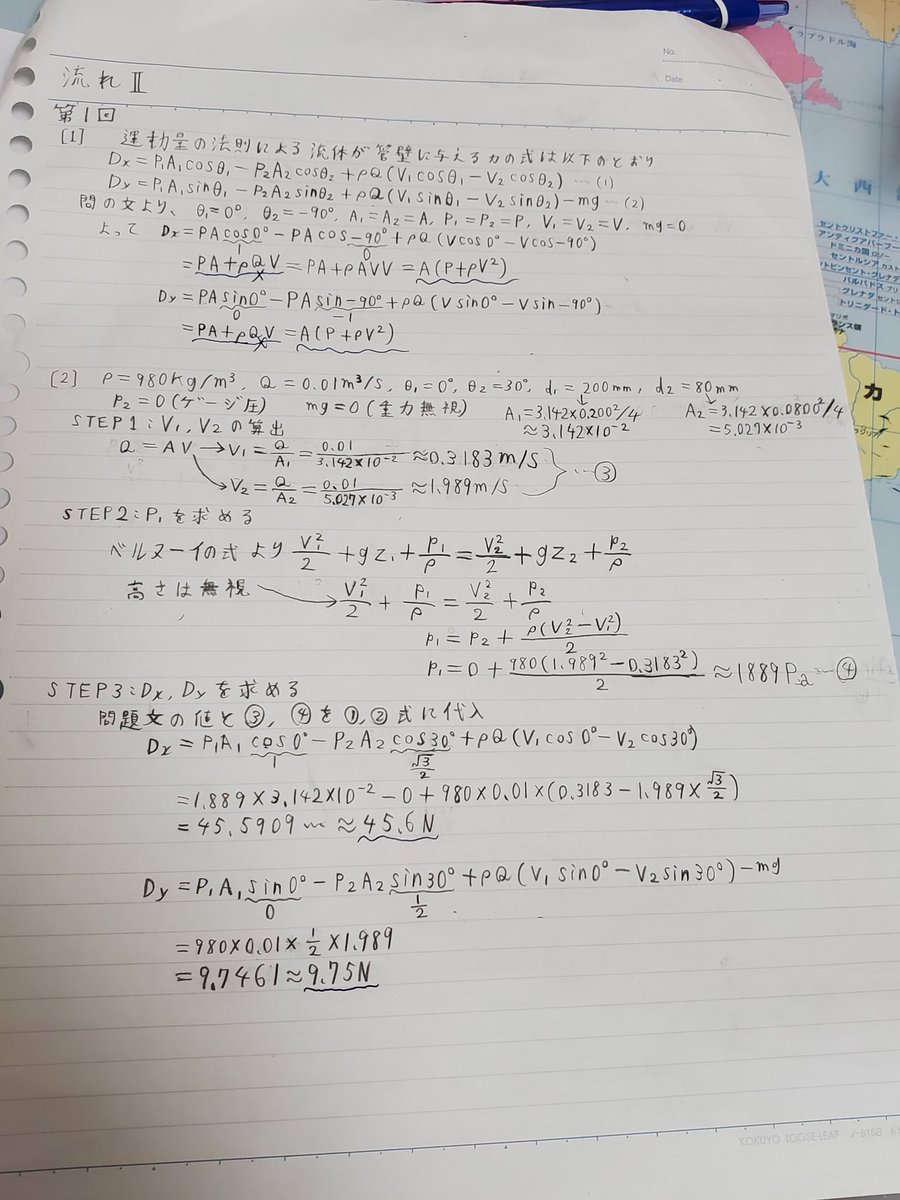 No.
Date
流れⅡ
第1回
[1] 運動量の法則による流体が管壁に与える力の式は以下のとおり
Dx=P₁A₁cosθ₁-P₂A₂cosθ₂+ρQ(V₁cosθ₁-V₂cosθ₂)…(1)
Dy=P₁A₁sinθ₁-P₂A₂sinθ₂+ρQ(V₁sinθ₁-V₂sinθ₂)-mg…(2)
問の文より、θ₁=0°, θ₂=-90°, A₁=A₂=A, P₁=P₂=P, V₁=V₂=V, mg=0
よって Dx=PAcos0°-PAcos-90°+ρQ(Vcos0°-Vcos-90°)
1 0
=PA+ρQV=PA+ρAVV=A(P+ρV²)
Dy=PAsin0°-PAsin-90°+ρQ(Vsin0°-Vsin-90°)
0 -1
=PA+ρQV=A(P+ρV²)
[2] ρ=980kg/m³, Q=0.01m³/s, θ₁=0°, θ₂=30°, d₁=200mm, d₂=80mm
P₂=0(ゲージ圧) mg=0(重力無視) A₁=3.142×0.200²/4 A₂=3.142×0.0800²/4
≈3.142×10⁻² =5.027×10⁻³
STEP1:V₁,V₂の算出
Q=AV→V₁=Q/A₁=0.01/3.142×10⁻²≈0.3183m/s
…③
→V₂=Q/A₂=0.01/5.027×10⁻³≈1.989m/s
STEP2:P₁を求める
ベルヌーイの式より V₁²/2+gz₁+P₁/ρ=V₂²/2+gz₂+P₂/ρ
高さは無視→V₁²/2+P₁/ρ=V₂²/2+P₂/ρ
P₁=P₂+ρ(V₂²-V₁²)/2
P₁=0+980(1.989²-0.3183²)/2≈1889Pa…④
STEP3:Dx,Dyを求める
問題文の値と③,④を①,②式に代入
Dx=P₁A₁cos0°-P₂A₂cos30°+ρQ(V₁cos0°-V₂cos30°)
1 √3/2
=1.889×3.142×10⁻²-0+980×0.01×(0.3183-1.989×√3/2)
=45.5909…≈45.6N
Dy=P₁A₁sin0°-P₂A₂sin30°+ρQ(V₁sin0°-V₂sin30°)-mg
0 1/2
=980×0.01×1/2×1.989
=9.7461≈9.75N
KOKUYO LOOSE-LEAF
ラブラドル海
大西
セントクリストファー・
アンティグアバーブー
ドミニカ国
セントルシア
バルバドス
グレナダ
トリニダード・ト
カ